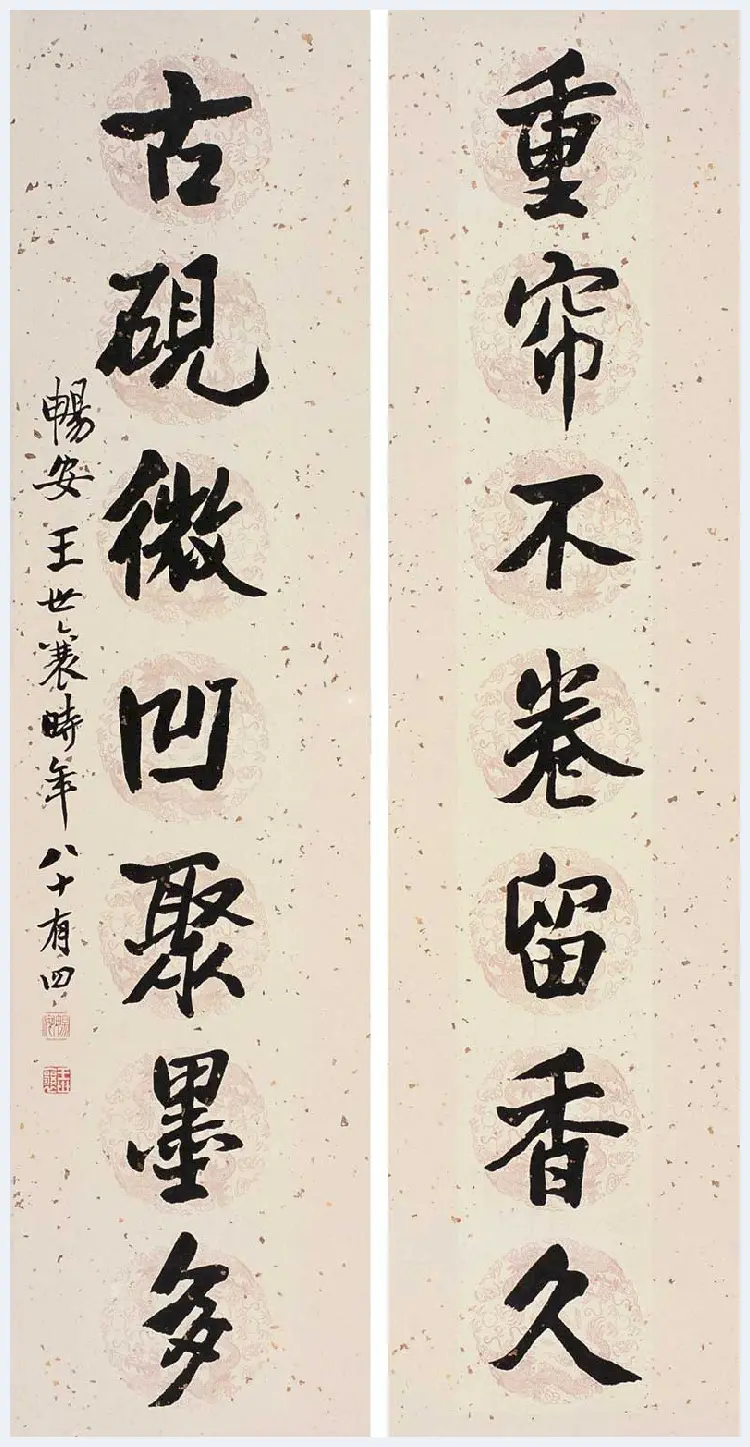 重帘不卷留香久
古硯微凹聚墨多
暢安王世襄時年八十有四